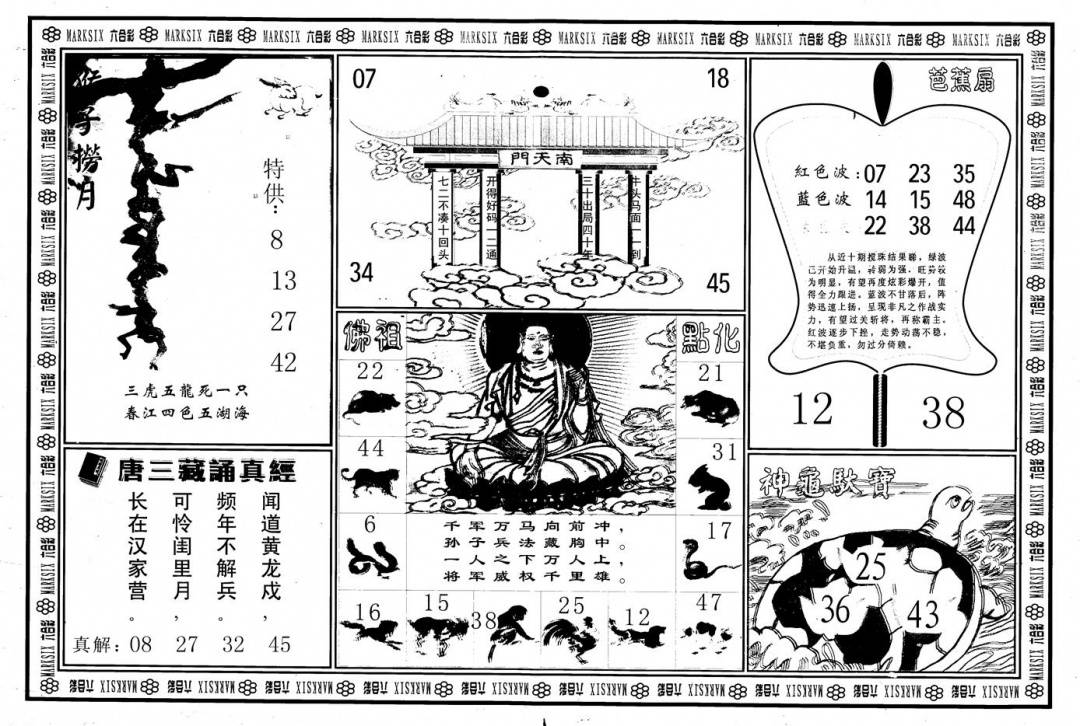 MARKSIX 六合彩 MARKSIX 六合彩 MARKSIX 六合彩 MARKSIX 六合彩 MARKSIX 六合彩 MARKSIX 六合彩 MARKSIX 六合彩 MARKSIX 六合彩 MARKSIX 六合彩 MARKSIX 六合彩
猴子撈月
特供：
8
13
27
42
三虎五龍死一只
春江四色五湖海
07
18
南天門
七二不凑十回头
开得好码一二通
三十出局四十年
牛头马面一一到
34
45
芭蕉扇
紅色波：07 23 35
藍色波 14 15 48
22 38 44
从近十期搅珠结果睇，绿波
已开始升温，转弱为强，旺势较
为明显，有望再度炫彩爆开，值
得全力跟进。蓝波不甘落后，阵
势迅速上扬，呈现非凡之作战实
力，有望过关斩将，再称霸主。
红波逐步下挫，走势动荡不稳，
不堪负重，勿过分倚赖。
12
38
佛祖
點化
22
21
44
31
6
17
千军万马向前冲，
孙子兵法藏胸中。
一人之下万人上，
将军威权千里雄。
16
15
38
25
12
47
唐三藏誦真經
闻道黄龙戍，
频年不解兵。
可怜闺里月，
长在汉家营。
真解：08 27 32 45
神龜馱寶
25
36
43
MARKSIX 六合彩 MARKSIX 六合彩 MARKSIX 六合彩 MARKSIX 六合彩 MARKSIX 六合彩 MARKSIX 六合彩 MARKSIX 六合彩 MARKSIX 六合彩 MARKSIX 六合彩 MARKSIX 六合彩